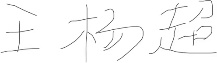 王杨超